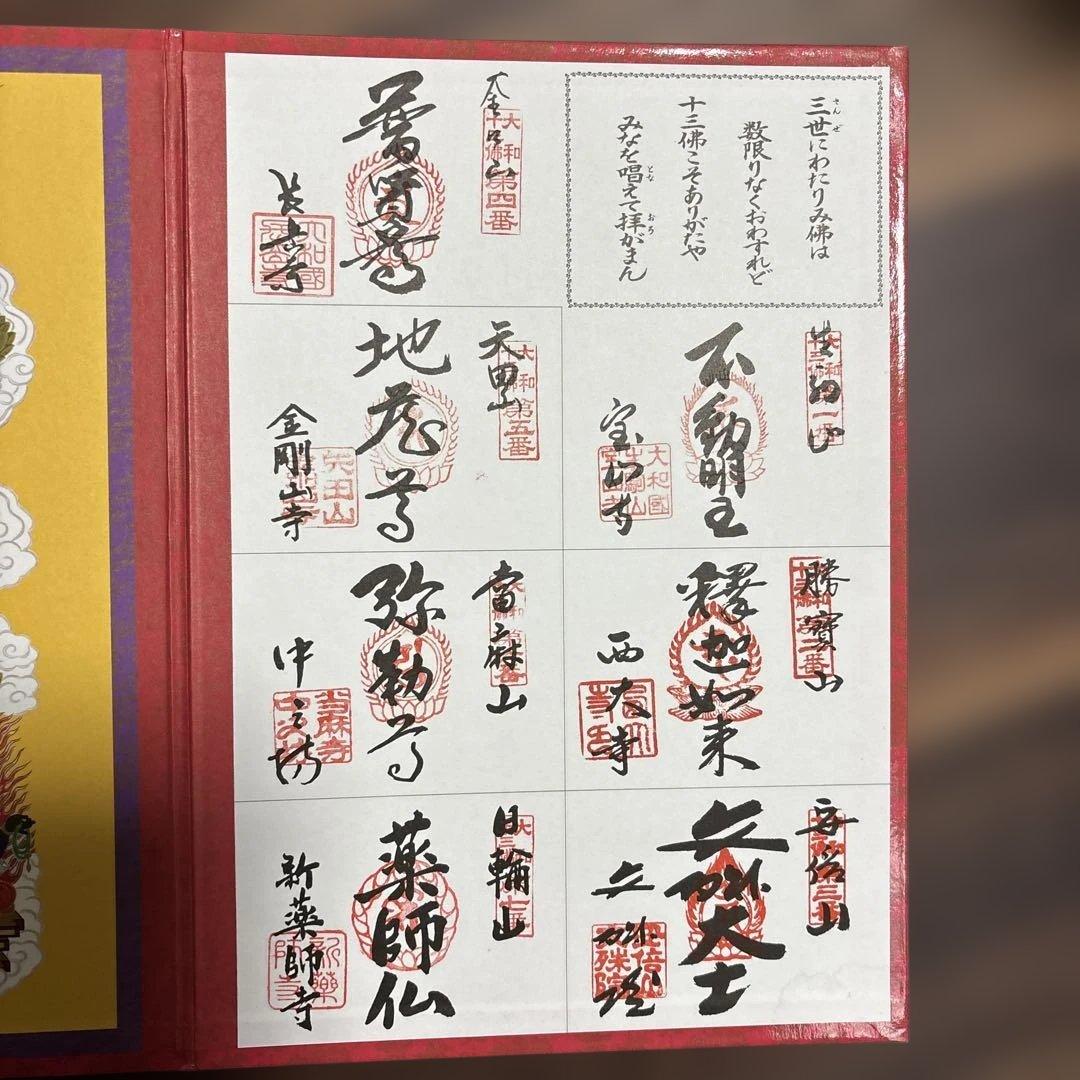 三世にわたりみ佛は
さんぜ
数限りなくおわすれど
十三佛こそありがたや
みなを唱えて拝がまん
とな
おろ
大和
十三佛
第四番
普賢尊
大和國
生駒山
大和
第一番
不動明王
宝山寺
大和國
矢田山
大和
第五番
地蔵尊
金剛山寺
矢田山
勝寶山
第二番
釋迦如来
西大寺
當麻山
大和
弥勒尊
中之坊
当麻寺
安倍山
文殊大士
文殊院
日輪山
薬師仏
新薬師寺
新薬
師寺